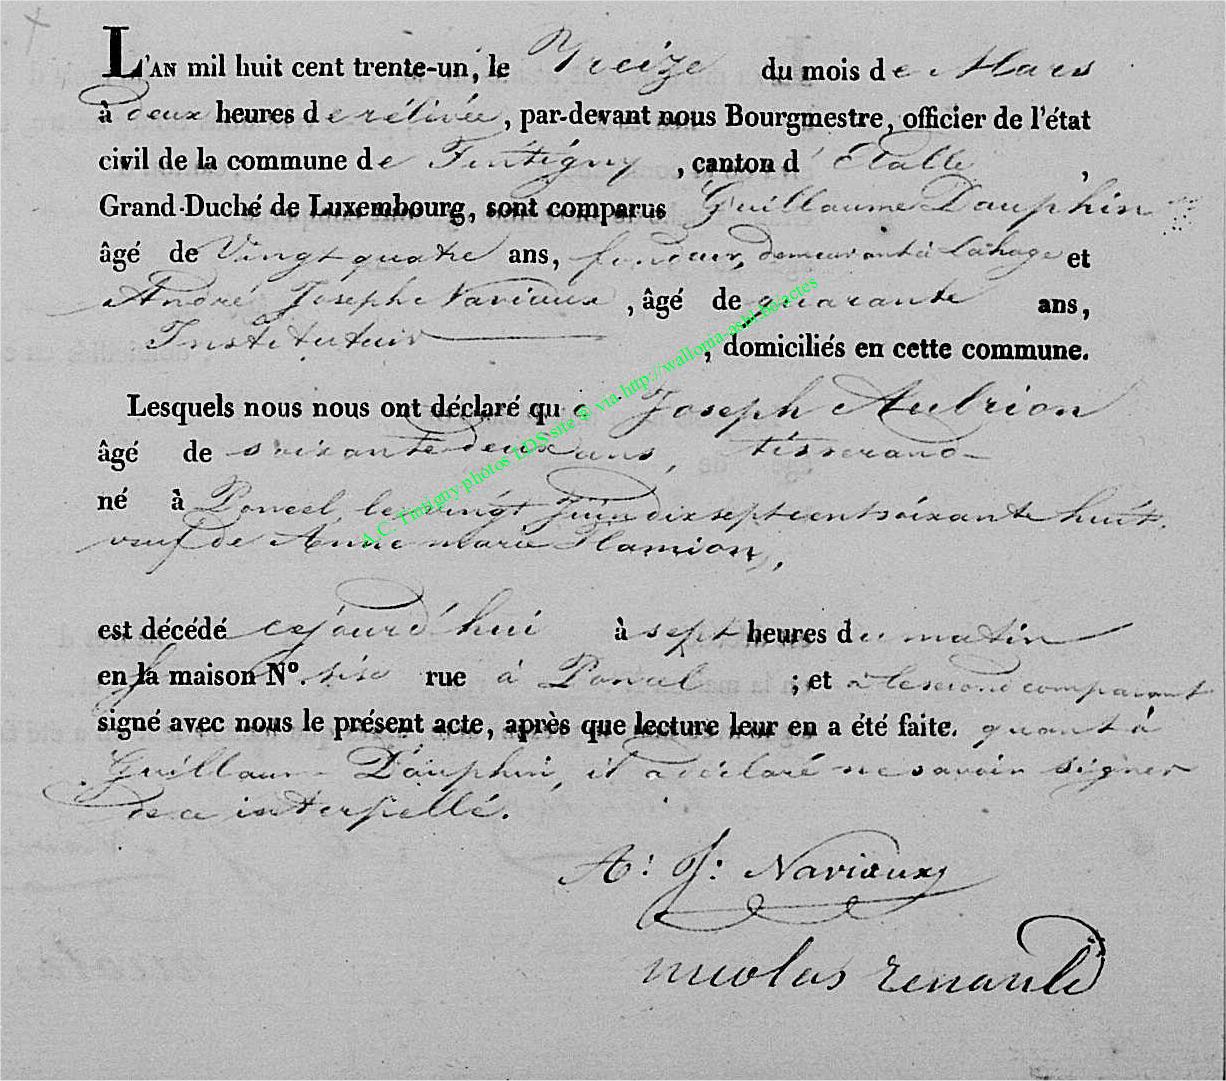 L'AN mil huit cent trente-un, le Treize du mois de Mars
à deux heures de rélévée, par-devant nous Bourgmestre, officier de l'état
civil de la commune de Tintigny, canton d'Etalle,
Grand-Duché de Luxembourg, sont comparus Guillaume Dauphin
âgé de Vingt quatre ans, fondeur, demeurant à Lahage et
André Joseph Naviaux, âgé de quarante ans,
Instituteur, domiciliés en cette commune.
Lesquels nous nous ont déclaré que Joseph Aubrion
âgé de soixante deux ans, tisserand
né à Poncel le vingt Juin dix sept cent soixante huit.
veuf de Anne marie Flamion,
est décédé cejourd'hui à sept heures du matin
en la maison N°. sise rue à Poncel ; et a le second comparant
signé avec nous le présent acte, après que lecture leur en a été faite. quant à
Guillaume Dauphin, it a déclaré ne savoir signer
de ce interpellé.
A: J: Naviaux
nicolas renauld
A.C. Tintigny photos LDS site @ via http://wallonia-asbl.be/actes